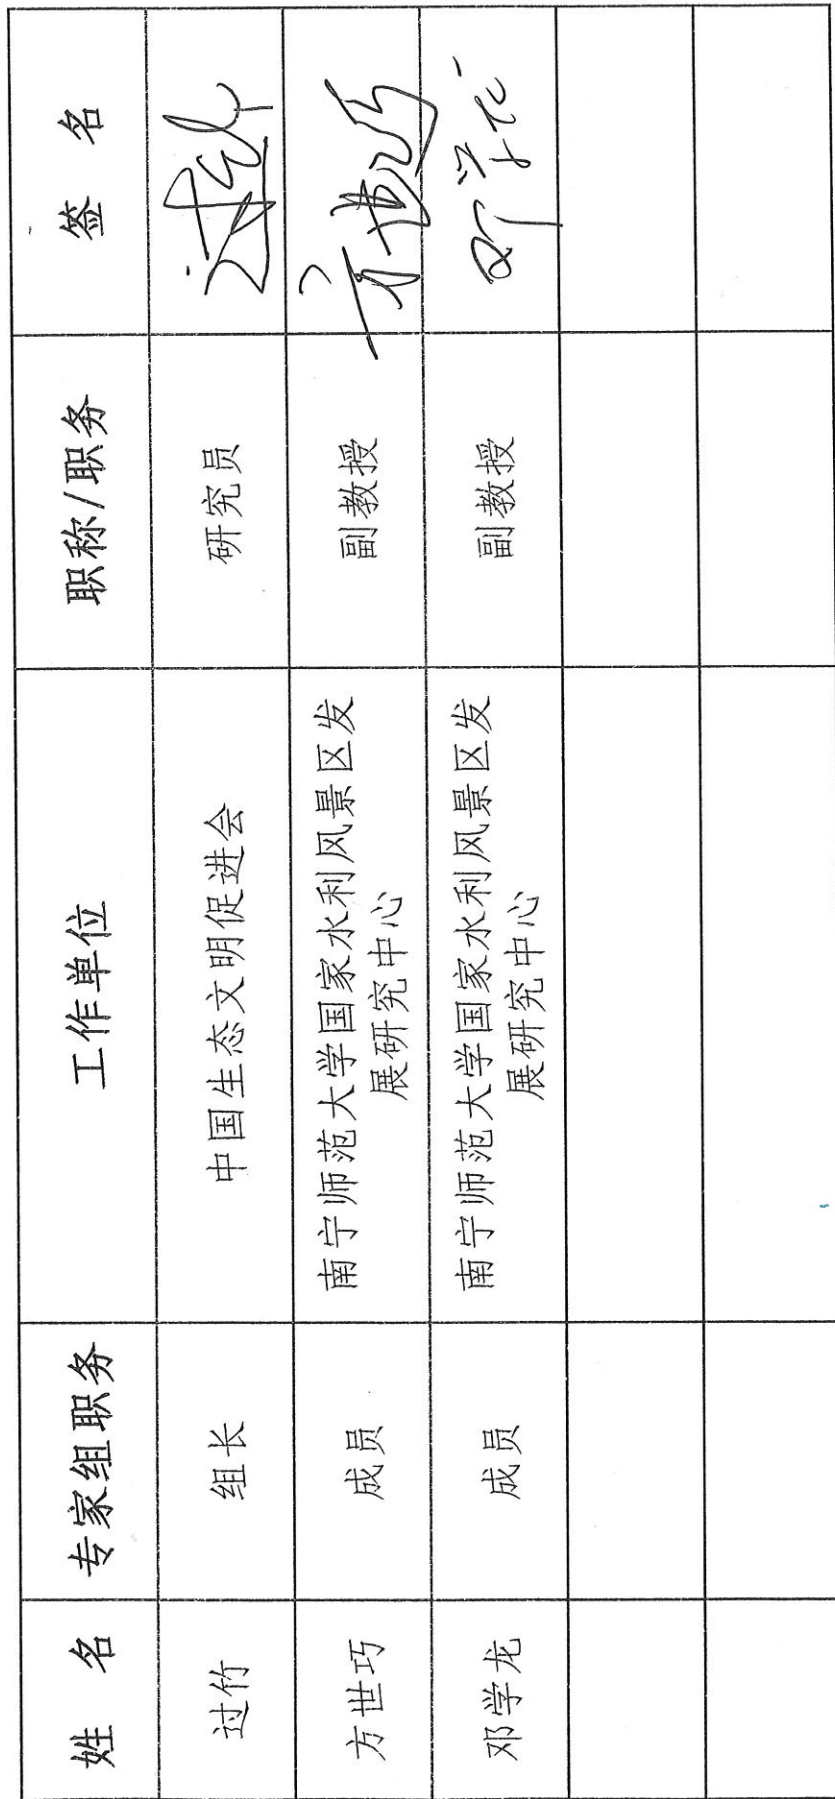 姓 名 专家组职务 工作单位 职称/职务 签 名
过竹 组长 中国生态文明促进会 研究员 过竹
方世巧 成员 南宁师范大学国家水利风景区发
展研究中心 副教授 方世巧
邓学龙 成员 南宁师范大学国家水利风景区发
展研究中心 副教授 邓学龙